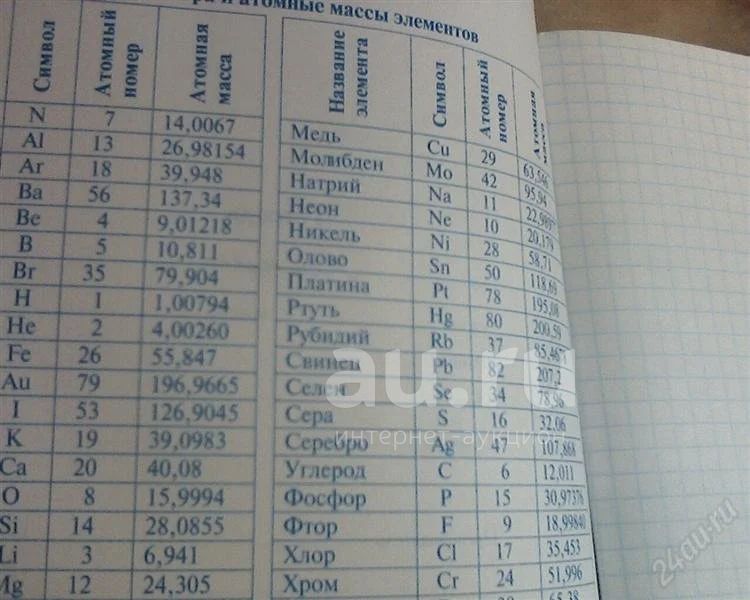 атомные массы элементов
Символ Атомный номер Атомная масса
N 7 14,0067
Al 13 26,98154
Ar 18 39,948
Ba 56 137,34
Be 4 9,01218
B 5 10,811
Br 35 79,904
H 1 1,00794
He 2 4,00260
Fe 26 55,847
Au 79 196,9665
I 53 126,9045
K 19 39,0983
Ca 20 40,08
O 8 15,9994
Si 14 28,0855
Li 3 6,941
Mg 12 24,305
Название элемента Символ Атомный номер Атомная масса
Медь Cu 29 63,546
Молибден Mo 42 95,94
Натрий Na 11
Неон Ne 10 20,179
Никель Ni 28 58,71
Олово Sn 50 118,69
Платина Pt 78 195,08
Ртуть Hg 80 200,59
Рубидий Rb 37
Свинец Pb 82 207,2
Селен Se 34 78,96
Сера S 16 32,06
Серебро Ag 47 107,868
Углерод C 6 12,011
Фосфор P 15 30,97376
Фтор F 9 18,99840
Хлор Cl 17 35,453
Хром Cr 24 51,996
65,38
au.ru
интернет-аукцион
24au.ru